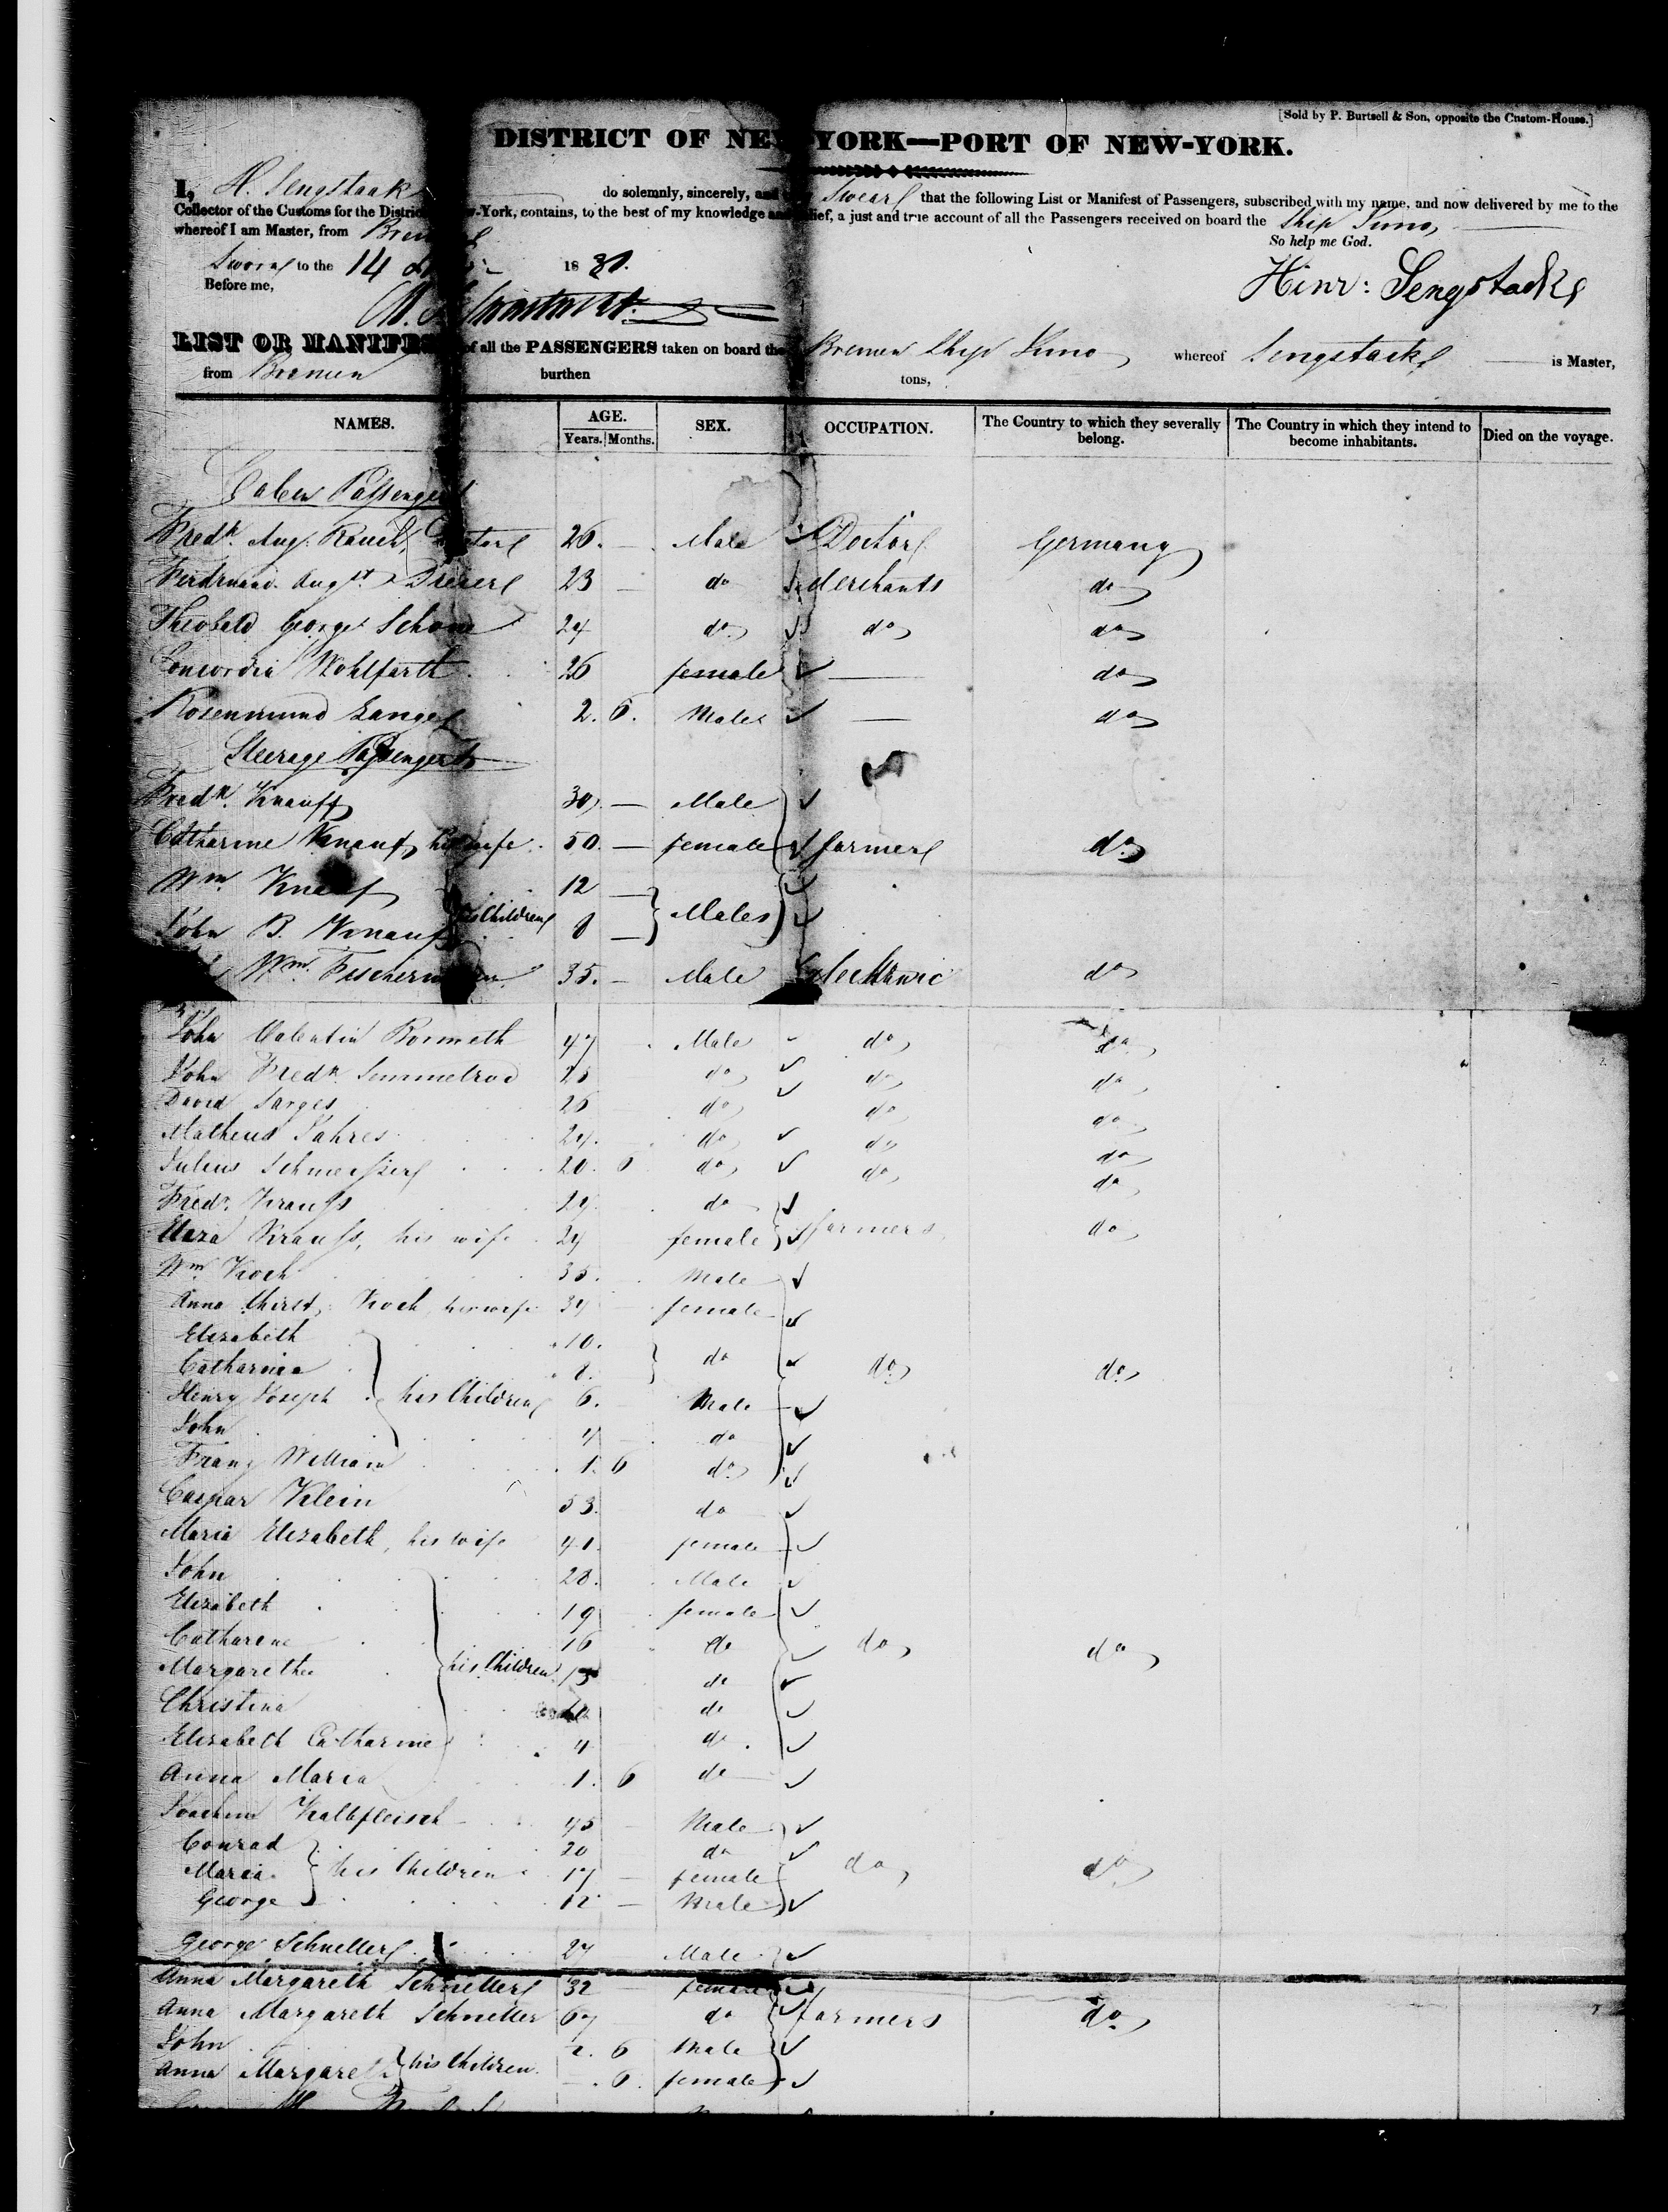 [Sold by P. Burtsell & Son, opposite the Custom-House.]
DISTRICT OF NEW YORK—PORT OF NEW-YORK.
I, H. Sengstack do solemnly, sincerely, and swear that the following List or Manifest of Passengers, subscribed with my name, and now delivered by me to the
Collector of the Customs for the District -York, contains, to the best of my knowledge and belief, a just and true account of all the Passengers received on board the Ship
whereof I am Master, from Bremen
So help me God.
Sworn to the 14 18 31.
Before me,
Hinr: Sengstack
LIST OR MANIFEST of all the PASSENGERS taken on board the Bremen Ship whereof Sengstack is Master,
from Bremen burthen tons,
NAMES. AGE. SEX. OCCUPATION. The Country to which they severally belong. The Country in which they intend to become inhabitants. Died on the voyage.
Years. Months.
Passengers
Fredk. Aug. Rauch, Doctor 26. — Male Doctor Germany
Augst. 23 — do Merchants do
Theobald George Schone 24 do do do
Concordia Wohlfarth 26 female — do
Rosenmund Lange 2. 6. Males — do
Steerage Passengers
Fredk. Knauff 30 — Male
Catharine Knauf, his wife 50. — female farmer do
Wm. Knauf 12 —
his Children Males
John B. Knauf 8 —
Wm. 35. — Male Mechanic do
John Valentin 47 Male do do
John Fredk. Semmelrod 25 do do do
David Sarges 26 do do do
Matheus Jahres 24. do do do
Julius 20. 6 do do do
Fredr. Krauss 29 do
Eliza Krauss, his wife 24 female farmers do
Wm. Koch 35. Male
Anna Christ, Koch, his wife 34 female
Elizabeth 10.
Catharina 8. do do do
Henry Joseph his Children 6. Male
John 4 do
Franz William 1. 6 do
Caspar Klein 53. do
Maria Elizabeth, his wife 41. female
John 28. Male
Elizabeth 19 female
Catharine 16 do do do
Margarethe his Children do
Christina do
Elisabeth Catharine 4 do
Anna Maria 1. 6 do
Joachim Kalbfleisch 45 Male
Conrad 20 do
Maria his Children 17 — female do do
George 12 — Male
George Schneller 27 Male
Anna Margareth Schneller 32 female
Anna Margareth Schneller 67 do farmers do
John 2. 6 Male
his Children
Anna Margareth —. 6. female